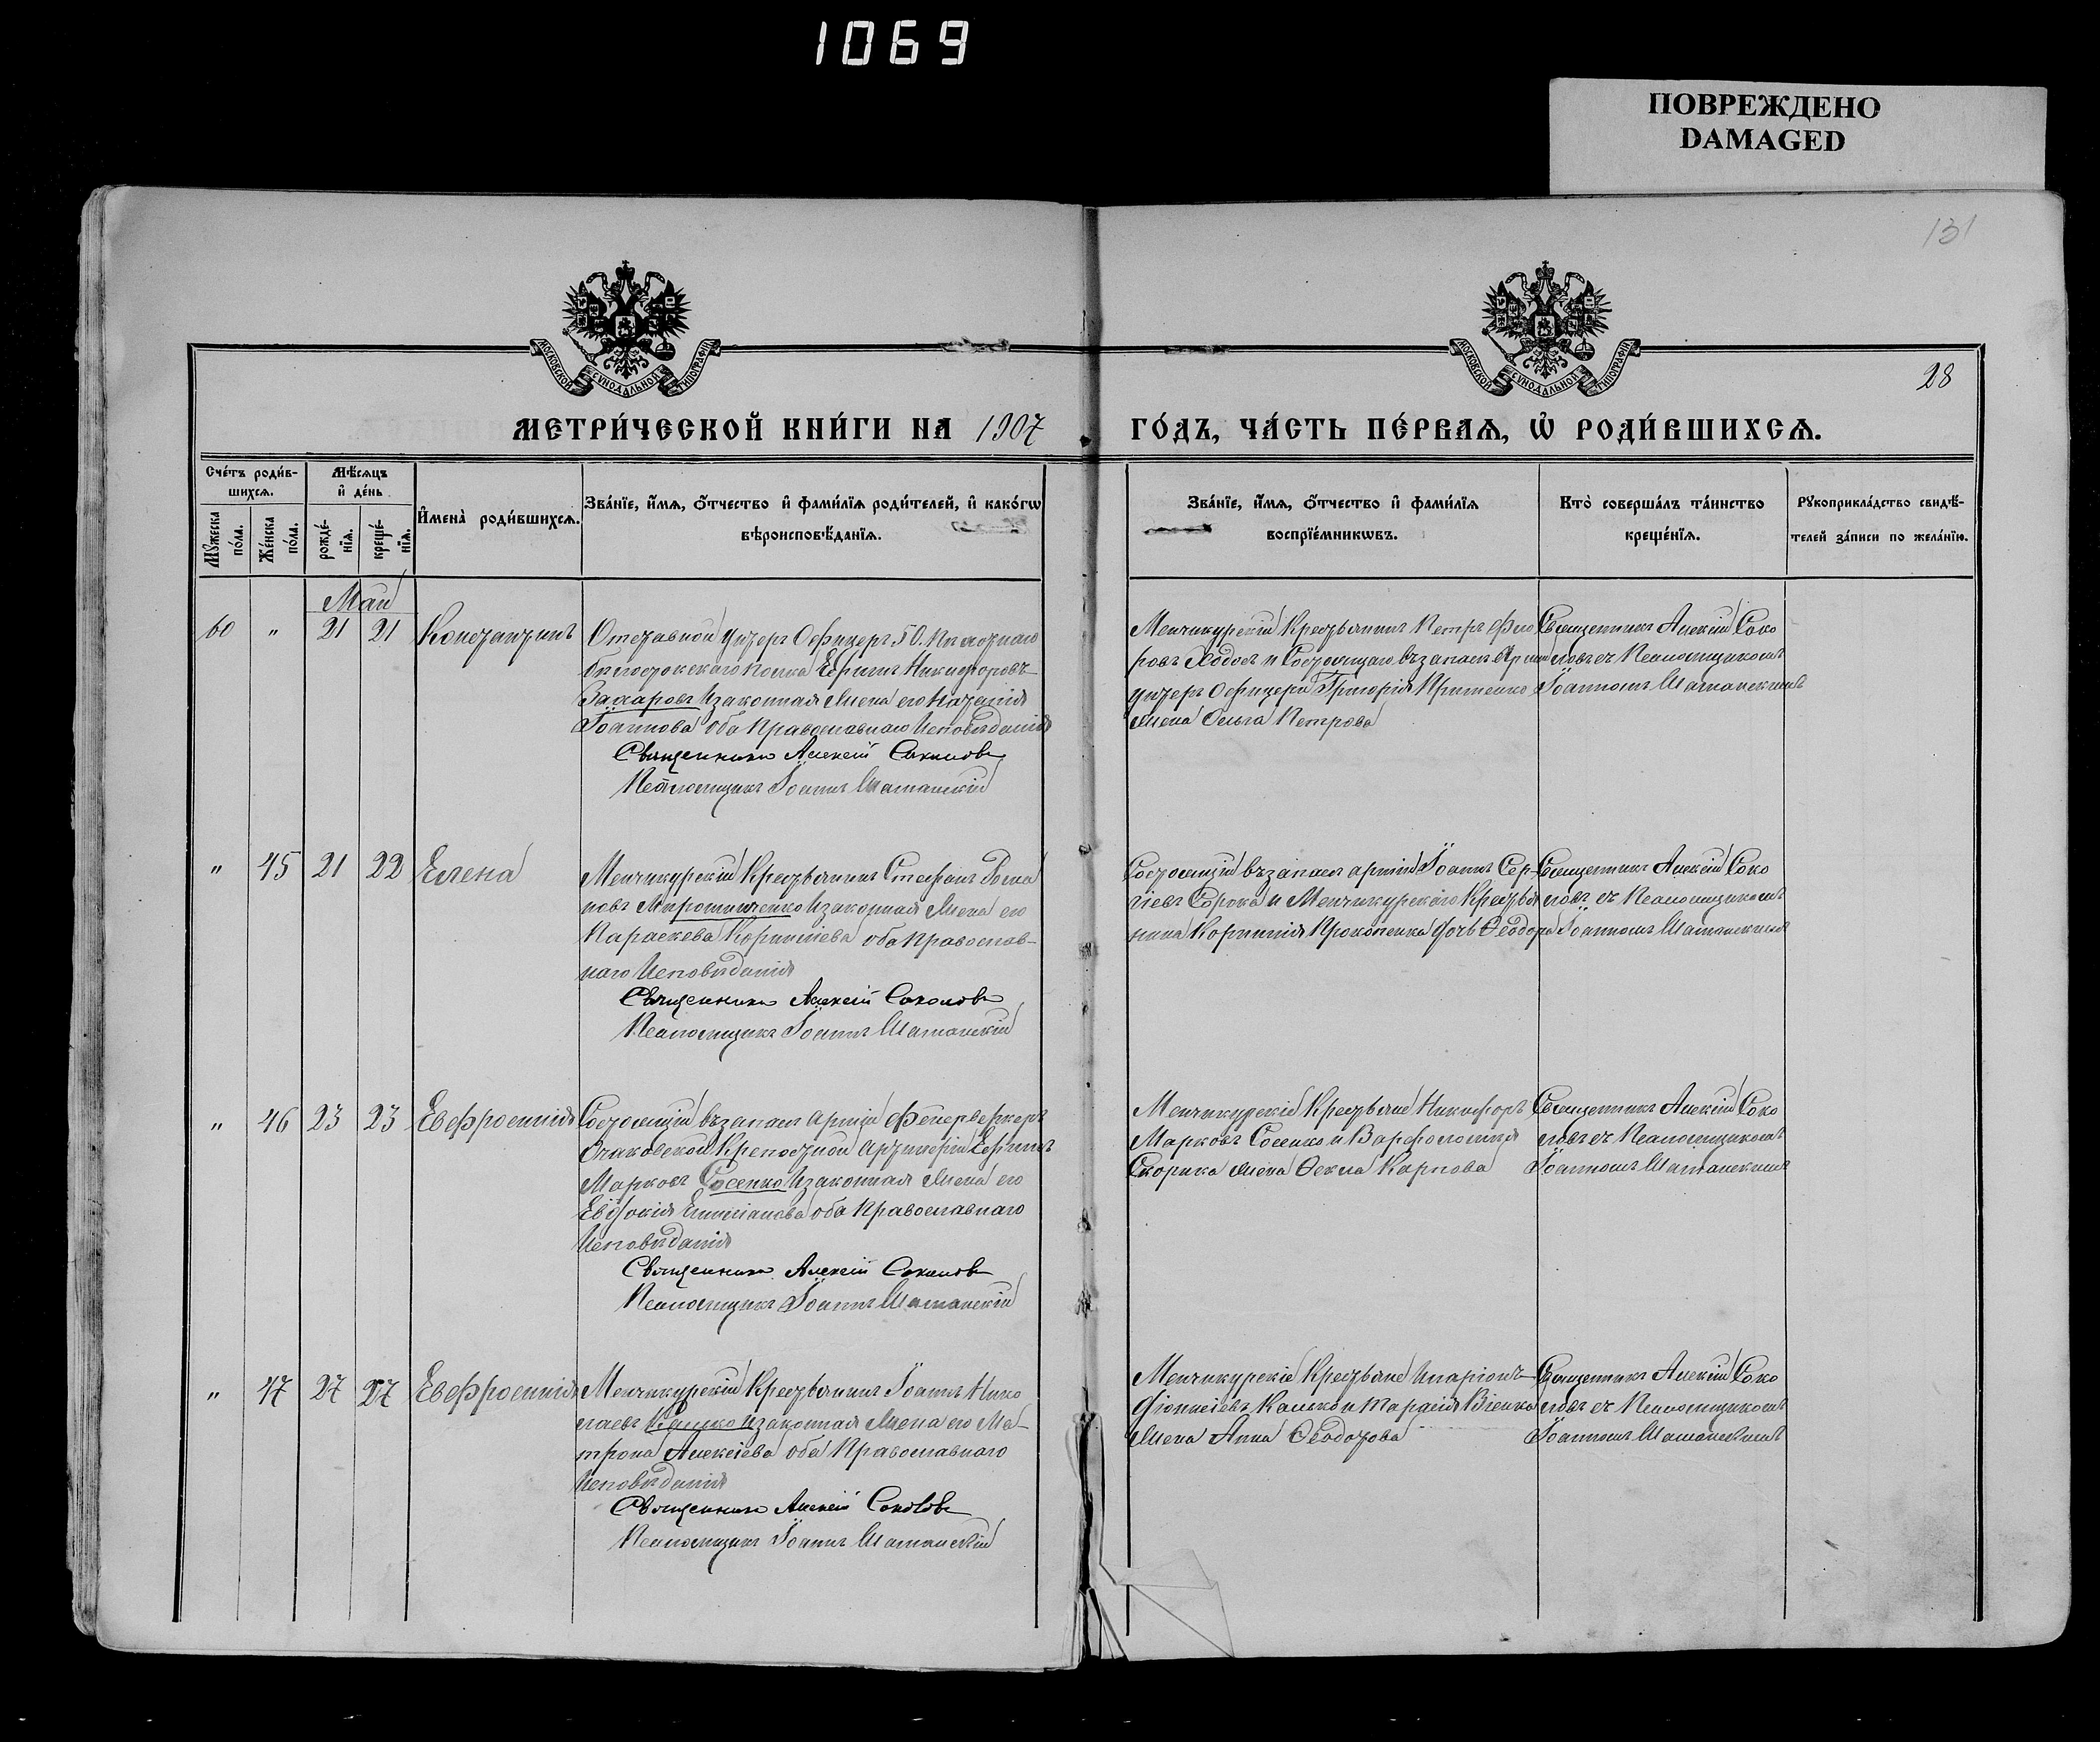 1069
ПОВРЕЖДЕНО
DAMAGED
131
МОСКОВСКОЙ СУНОДАЛЬНОЙ ТИПОГРАФІИ
МОСКОВСКОЙ СУНОДАЛЬНОЙ ТИПОГРАФІИ
28
МЕТРИ́ЧЕСКОЙ КНИ́ГИ НА 1907
ГО́ДЪ, ЧА́СТЬ ПЕ́РВАѦ, Ѡ҆ РОДИ́ВШИХСѦ.
Сче́тъ роди́в-
шихсѧ.
Мѣ́сѧцъ
и҆ де́нь
Мꙋ́жеска
по́ла.
Же́нска
по́ла.
рожде́-
нїѧ.
креще́-
нїѧ.
И҆мена̀ роди́вшихсѧ.
Зва́нїе, и҆́мѧ, ѻ҆́тчество и҆ фами́лїѧ роди́телей, и҆ како́гѡ
вѣроисповѣ́данїѧ.
Зва́нїе, и҆́мѧ, ѻ҆́тчество и҆ фами́лїѧ
воспрїе́мникѡвъ.
Кто̀ соверша́лъ та́инство
креще́нїѧ.
Рꙋкоприкла́дство свидѣ́-
телей за́писи по жела́нїю.
Май
60 " 21 21 Константинъ
Отставной Унтеръ Офицеръ 50. Пѣхотнаго
Бѣлостокскаго полка Ефимъ Никифоровъ
Захаровъ и законная жена его Наталія
Іоаннова оба Православнаго Исповѣданія
Священникъ Алексій Соколовъ
Псаломщикъ Іоаннъ Шатанскій
Менчикурскій Крестьянинъ Петръ Фео
ровъ Ходос и Состоящаго въ запасѣ Арміи
унтеръ Офицера Григорія Притенко
жена Ольга Петрова
Священникъ Алексій Соко
ловъ съ Псаломщикомъ
Іоанномъ Шатанскимъ
" 45 21 22 Елена
Менчикурскій Крестьянинъ Стефанъ Рома
новъ Мирошниченко и законная жена его
Параскева Корниліева оба Православ-
наго Исповѣданія
Священникъ Алексій Соколовъ
Псаломщикъ Іоаннъ Шатанскій
Состоящій въ запасѣ арміи Іоаннъ Сер-
гіевъ Сорока и Менчикурскаго Крестья
нина Корнилія Прокопенка дочь Ѳеодора
Священникъ Алексій Соко
ловъ съ Псаломщикомъ
Іоанномъ Шатанскимъ
" 46 23 23 Евфросинія
Состоящій въ запасѣ Арміи Фейерверкеръ
Очаковской Крепостной Артилеріи Ефимъ
Марковъ Сосенко и законная жена его
Евдокія Епифанова оба Православнаго
Исповѣданія
Священникъ Алексій Соколовъ
Псаломщикъ Іоаннъ Шатанскій
Менчикурскіе Крестьяне Никифоръ
Марковъ Сосенко и Варфоломея
Скорика жена Ѳекла Карпова
Священникъ Алексій Соко
ловъ съ Псаломщикомъ
Іоанномъ Шатанскимъ
" 47 27 27 Евфросинія
Менчикурскій Крестьянинъ Іоаннъ Нико
лаевъ и законная жена его Ма-
трона Алексіева оба Православнаго
Исповѣданія
Священникъ Алексій Соколовъ
Псаломщикъ Іоаннъ Шатанскій
Менчикурскіе Крестьяне Иларіонъ
Діонисіевъ Калько и Тарасія
жена Анна Ѳеодорова
Священникъ Алексій Соко
ловъ съ Псаломщикомъ
Іоанномъ Шатанскимъ